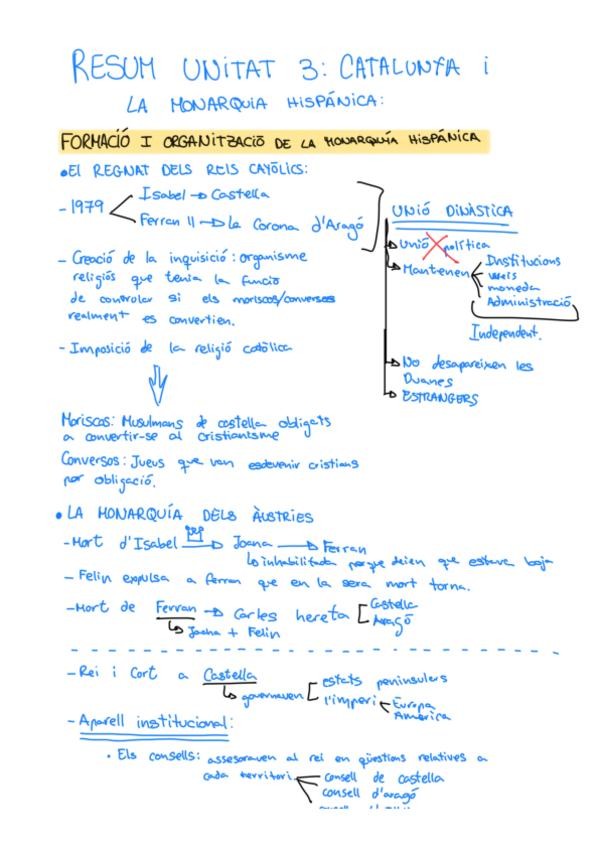 RESUM UNITAT 3: CATALUNYA i
LA MONARQUIA HISPÁNICA:
FORMACIÓ I ORGANITZACIÓ DE LA MONARQUÍA HISPÀNICA
• El REGNAT DELS REIS CATÒLICS:
- 1979
Isabel → Castella
Ferran II → la Corona d'Aragó
- Creació de la inquisició: organisme
religiós que tenia la funció
de controlar si els moriscos/conversos
realment es convertien.
- Imposició de la religió catòlica
Moriscos: Musulmans de castella obligats
a convertir-se al cristianisme
Conversos: Jueus que van esdevenir cristians
por obligació.
UNIÓ DINÀSTICA
→ Unió política
→ Mantenen
Institucions
lleis
moneda
Administració
Independent.
→ No desapareixen les
Duanes
→ ESTRANGERS
• LA MONARQUÍA DELS ÀUSTRIES
- Mort d'Isabel → Joana → Ferran
inhabilitada perque deien que estava boja
- Felip expulsa a ferran que en la seva mort torna.
- Mort de Ferran → Carles hereta
Castella
Aragó
Joana + Felip
- Rei i Cort a Castella
governaven
estats peninsulars
l'imperi
Europa
Amèrica
- Aparell institucional:
• Els consells: assesoraven al rei en qüestions relatives a
cada territori
consell de castella
consell d'aragó